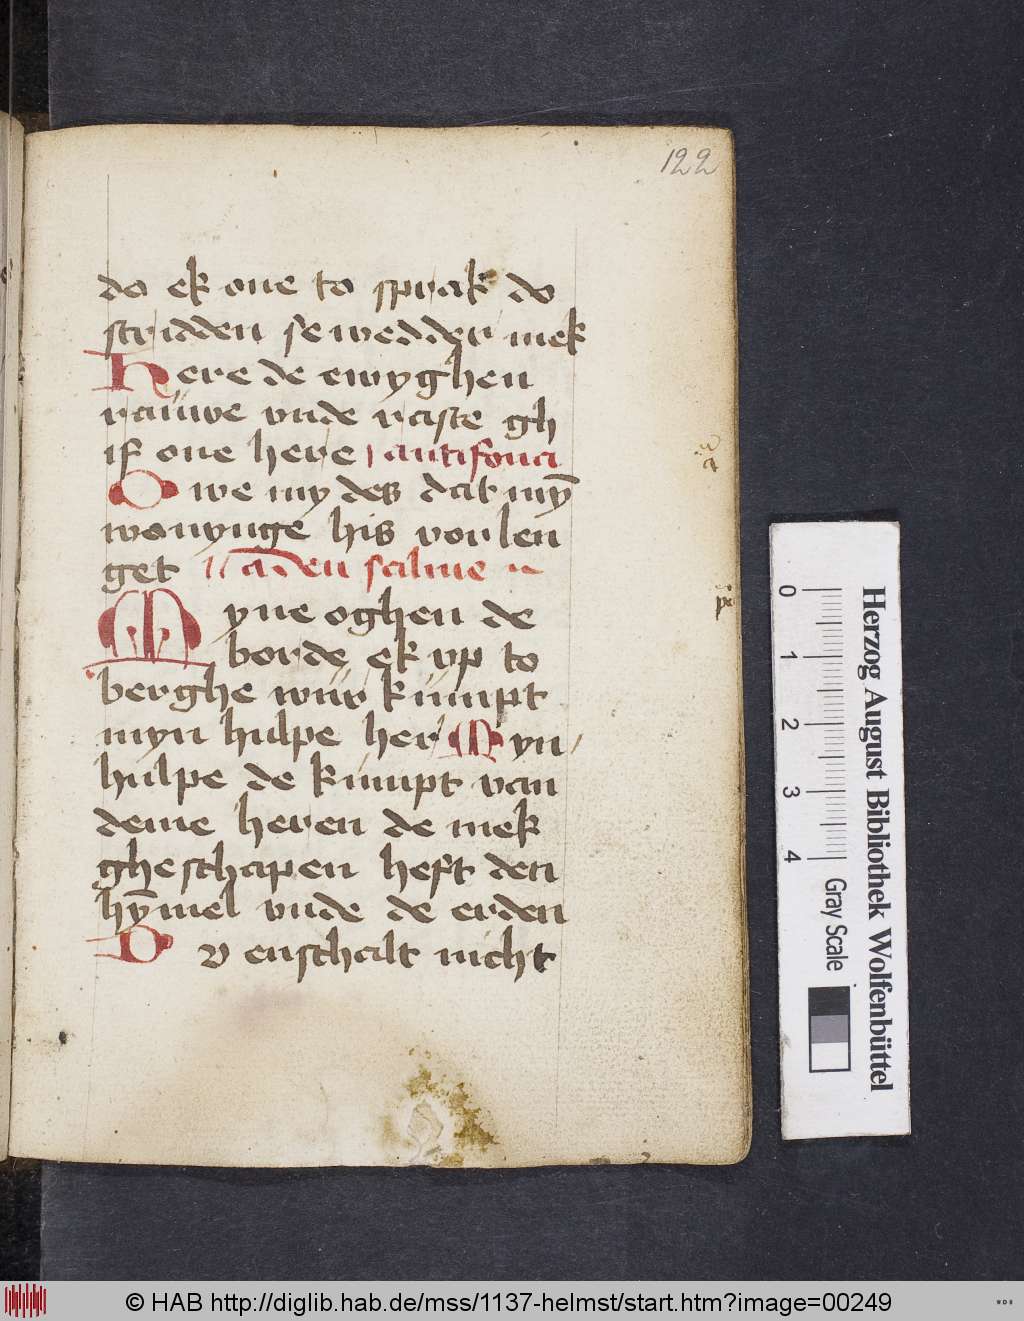 122
do ek one to sprak do
stridden se wedder mek
Here de ewyghen
rauwe vnde raste gh
if one here antifona
O we my des dat mȳ
wonynge his vorlen
get aden salme
Myne oghen de
borde ek vp to
berghe wur kumpt
myn hulpe her Myn
hulpe de kumpt van
deme heren de mek
gheschapen heft den
hȳmel vnde de erden
D v enschalt nicht
Herzog August Bibliothek Wolfenbüttel
0 1 2 3 4 Gray Scale
© HAB http://diglib.hab.de/mss/1137-helmst/start.htm?image=00249